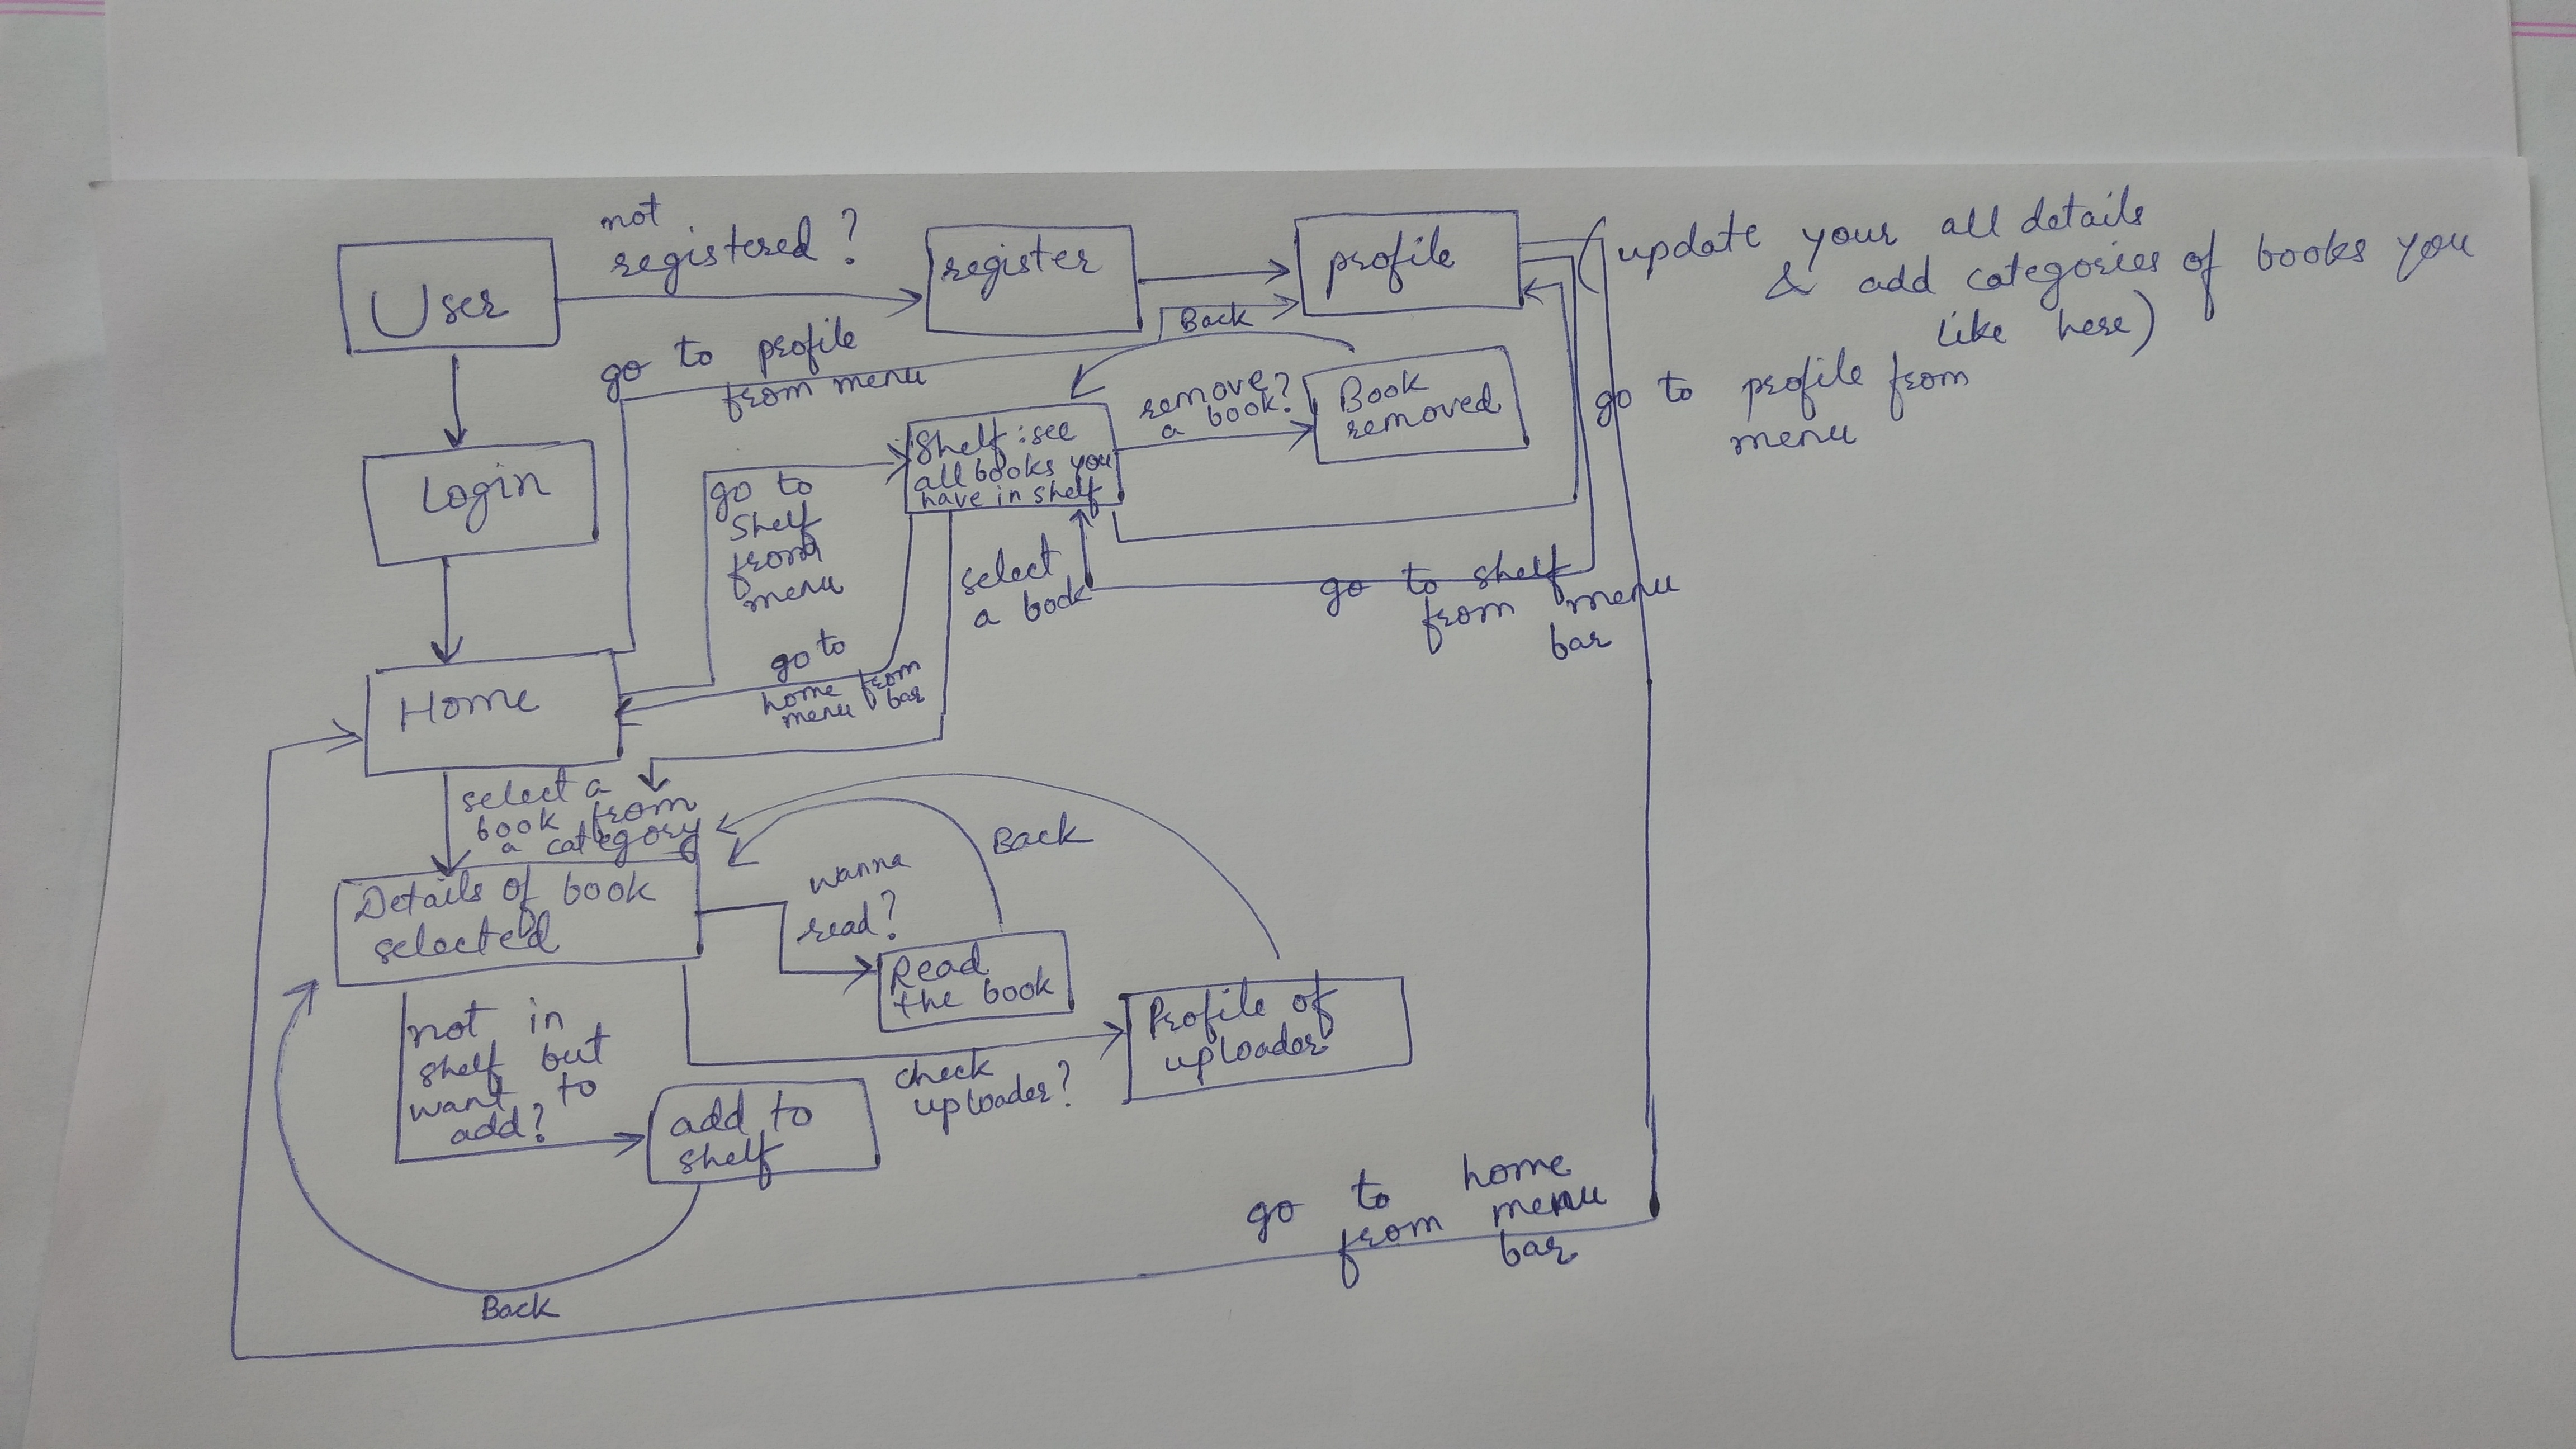 not
registered?
User
register
profile
(update your all details
& add categories of books you
like here)
Back
go to profile
from menu
remove
a book?
Book
removed
go to profile from
menu
Login
Shelf : see
all books you
have in shelf
go to
Shelf
from
menu
select
a book
go to shelf
from menu
bar
go to
home from
menu bar
Home
select a
book from
a category
Back
wanna
read?
Details of book
selected
Read
the book
Profile of
uploader
not in
shelf but
want to
add?
check
uploader?
add to
shelf
go to home
from menu
bar
Back